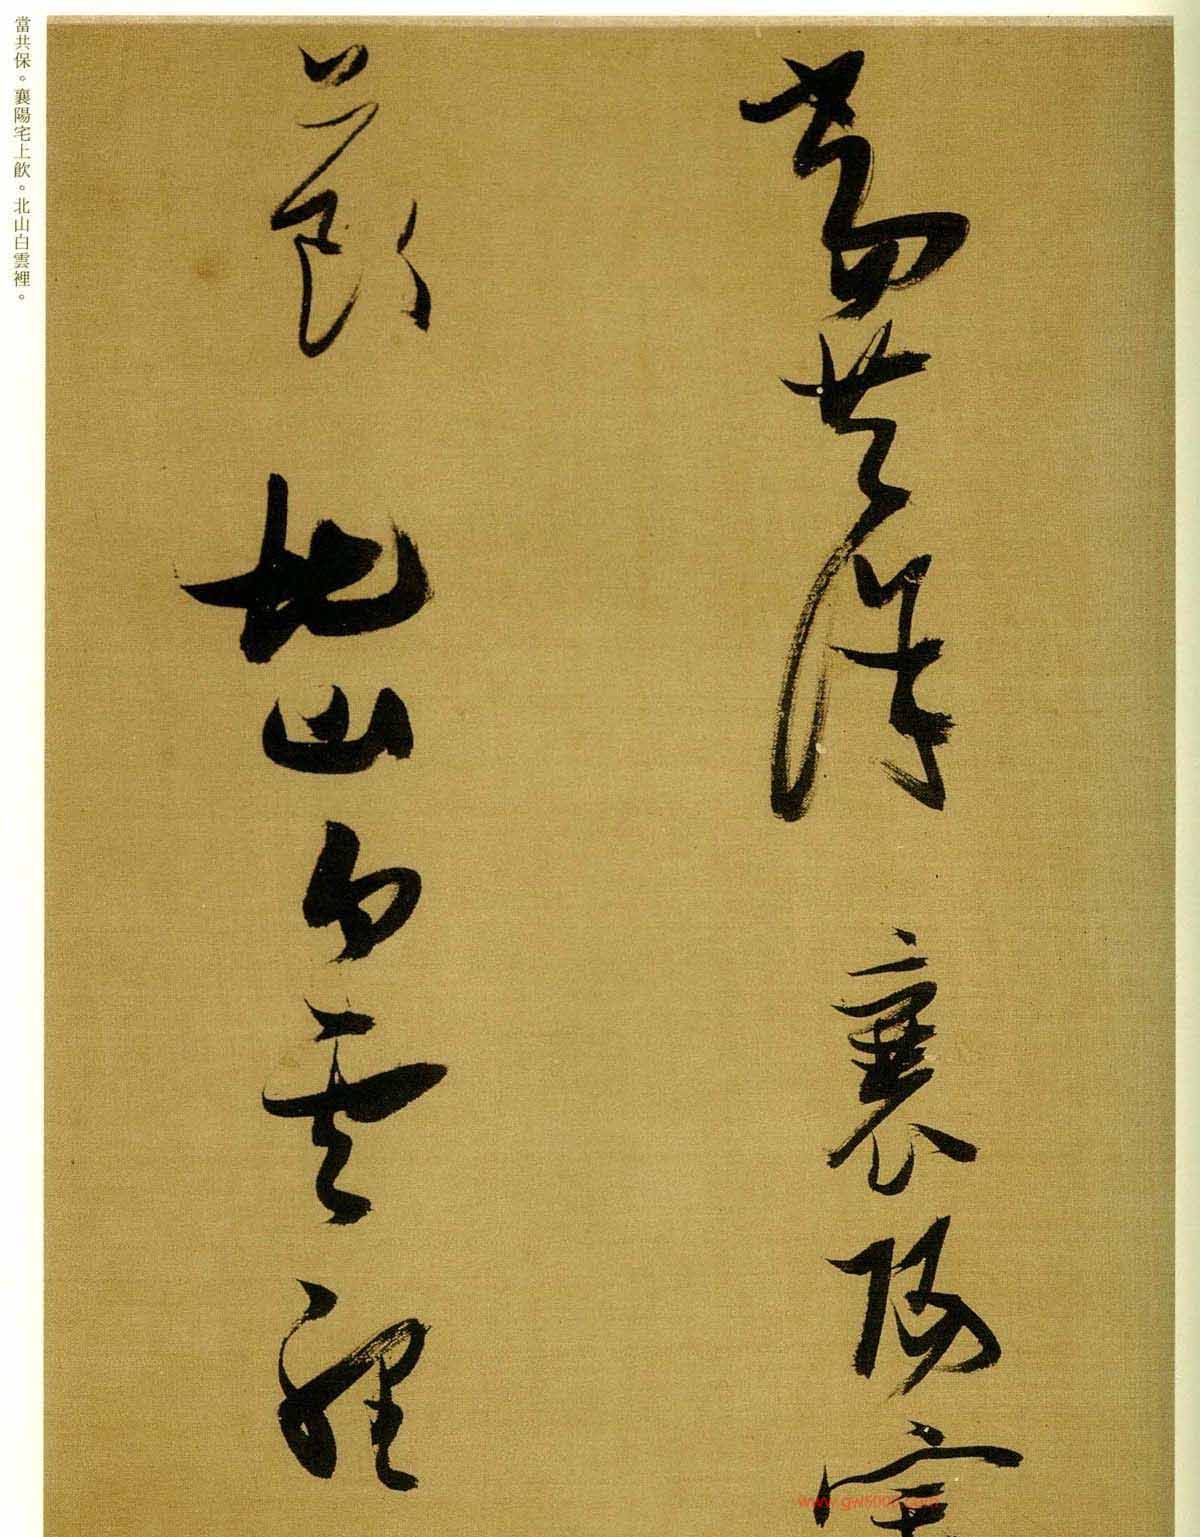 當共保襄陽宅
上飲北山白雲裡
當共保。襄陽宅上飲。北山白雲裡。